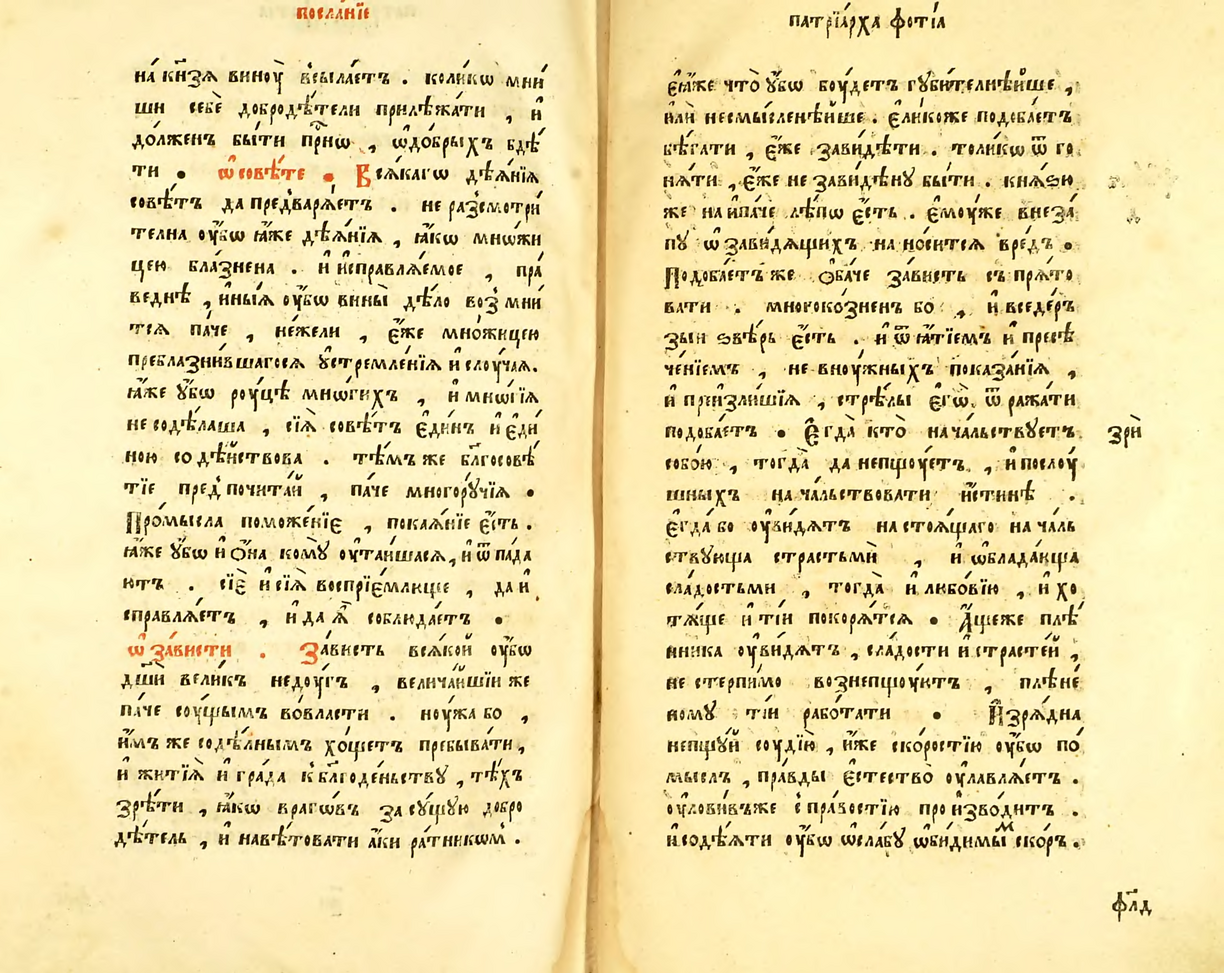 посла́нїе
на́ кн҃зѧ винꙋ̀ всылаетъ . колико̀ мни́
ши себѐ добродѣ́тели прилѣжа́ти , и҆
до́лженъ бы́ти при҆ѡ , ѡ҆до́брыхъ бдѣ́
ти . ѡ҆ совѣ́те . Всѧ́кагѡ дѣѧ́нїѧ
совѣ́тъ да предварѧ́етъ . не разсмотри́
телна оу҆́бѡ ꙗ҆́же дѣѧ́нїѧ , ꙗ҆́кѡ мнѡ́жи
цею бла́знена . и҆ и҆справлѧ́емое , пра́
веднѣ , и҆ны́ѧ оу҆́бѡ вины̀ дѣ́ло возмни́
тсѧ па́че , не́жели , є҆́же мно́жицею
преблазни́вшагосѧ ᲂустремле́нїѧ и҆ слоу́чаѧ.
ꙗ҆́же ᲂу҆́бѡ роу́цѣ мнѡ́гихъ , и҆ мнѡ́гїѧ
не содѣ́лаша , сїѧ̀ совѣ́тъ є҆ди́нъ и҆ є҆ди́
ною содѣ́йствова . тѣ́мъ же бл҃госовѣ́
тїе предпочита́й , па́че многорꙋ́чїѧ .
Про́мысла поможе́нїє , покаѧ́нїе є҆́сть .
ꙗ҆́же ᲂу҆́бѡ и҆ Ѻ҆на̀ комꙋ̀ оу҆таи́шасѧ, и҆ ѿ пада́
ютъ . сїѐ и҆ сїѧ̀ воспрїє́млюще , да и҆
справлѧ́етъ , и҆ да ѧ҆̀ соблюда́етъ .
ѡ҆ за́висти . За́висть всѧ́кой оу҆́бѡ
дш҃ѝ вели́къ недоу́гъ , велича́йшїи же
па́че соу́щымъ во́власти . ноу́жа бо ,
и҆́мъ же содѣ́лнымъ хо́щетъ пребыва́ти ,
и҆ житїѧ̀ и҆ гра́да к̾ бл҃годе́ньствꙋ , тѣ́хъ
зрѣ́ти , ꙗ҆́кѡ враго́въ за сꙋ́щꙋю добро
дѣ́тель , и҆ навѣ́товати а҆́ки ра́тникѡм .
патрїа́рха фо́тїа
є҆ѧ́же что̀ ᲂу҆́бѡ боу́детъ гꙋби́телнѣйше ,
и҆лѝ несмы́сленѣйше . є҆ли́коже подоба́етъ
бѣ́гати , є҆́же зави́дѣти . толи́кѡ ѿ го
нѧ́ти , є҆́же не зави́дѣнꙋ бы́ти . кнѧ́ѕю
же на и҆па́че лѣ́пѡ є҆́сть . є҆моу́же внеза́
пꙋ ѡ҆ зави́дѧщихъ на но́ситсѧ вре́дъ .
Подоба́етъ же Ѻ҆ба́че за́висть съ прѧ́то
вати . многокозненъ бо , и҆ вседе́ръ
зыи ѕвѣ́рь є҆́сть . и҆ ѿ ѩ́тїемъ и҆ пресѣ
че́нїемъ , не вноу́жныхъ показа́нїѧ ,
и҆ при́злишїѧ , стрѣ́лы є҆гѡ̀ ѿ ража́ти
подоба́етъ . Є҆гда̀ кто̀ нача́льствꙋетъ
собо́ю , тогда̀ да непщоу́етъ , и҆ послоу́
шныхъ нача́льствовати и҆́стинѣ .
є҆гда́ бо оу҆ви́дѧтъ настоѧ́щаго нача́ль
ствꙋюща страстьмѝ , и҆ ѡ҆блада́юща
сла́достьми , тогда̀ и҆ любо́вїю , и҆ хо
тѧ́ще и҆ ті́и покорѧ́тсѧ . А҆́щеже плѣ́
нника оу҆ви́дѧтъ , сла́дости и҆ страсте́й ,
не стерпи́мо возне́пщоуютъ , плѣне́
номꙋ ті́и рабо́тати . И҆зрѧ́дна
непщꙋ́й соудїю̀ , и҆́же ско́ростїю оу҆́бѡ по́
мыслъ , пра́вды є҆стество̀ оу҆лавлѧ́етъ .
оу҆лови́въже с̾ пра́востїю про и҆зво́дитъ .
и҆ содѣ́ѧти оу҆́бѡ ѡ҆сла́бꙋ ѡ҆би́димым ско́ръ .
зрѝ
фл҃д